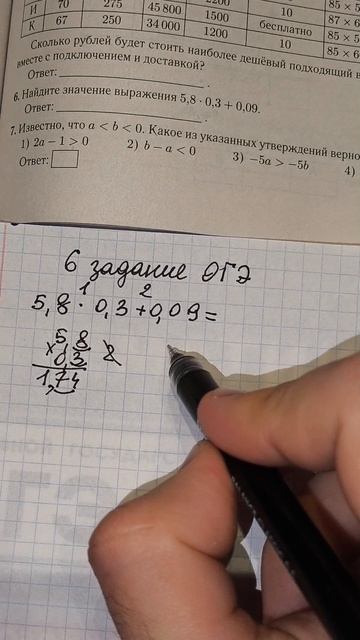 И 70 275 45 800 2200 10 85 × 5
К 67 250 34 000 1500 бесплатно 87 × 6
1200 10 85 × 5
Сколько рублей будет стоить наиболее дешёвый подходящий в
вместе с подключением и доставкой?
Ответ:
6. Найдите значение выражения 5,8 · 0,3 + 0,09.
Ответ:
7. Известно, что a < b < 0. Какое из указанных утверждений верно
1) 2a − 1 > 0 2) b − a < 0 3) −5a > −5b 4)
Ответ:
6 задание ОГЭ
1 2
5,8 · 0,3 + 0,09 =
5,8
× 0,3 2
1,74